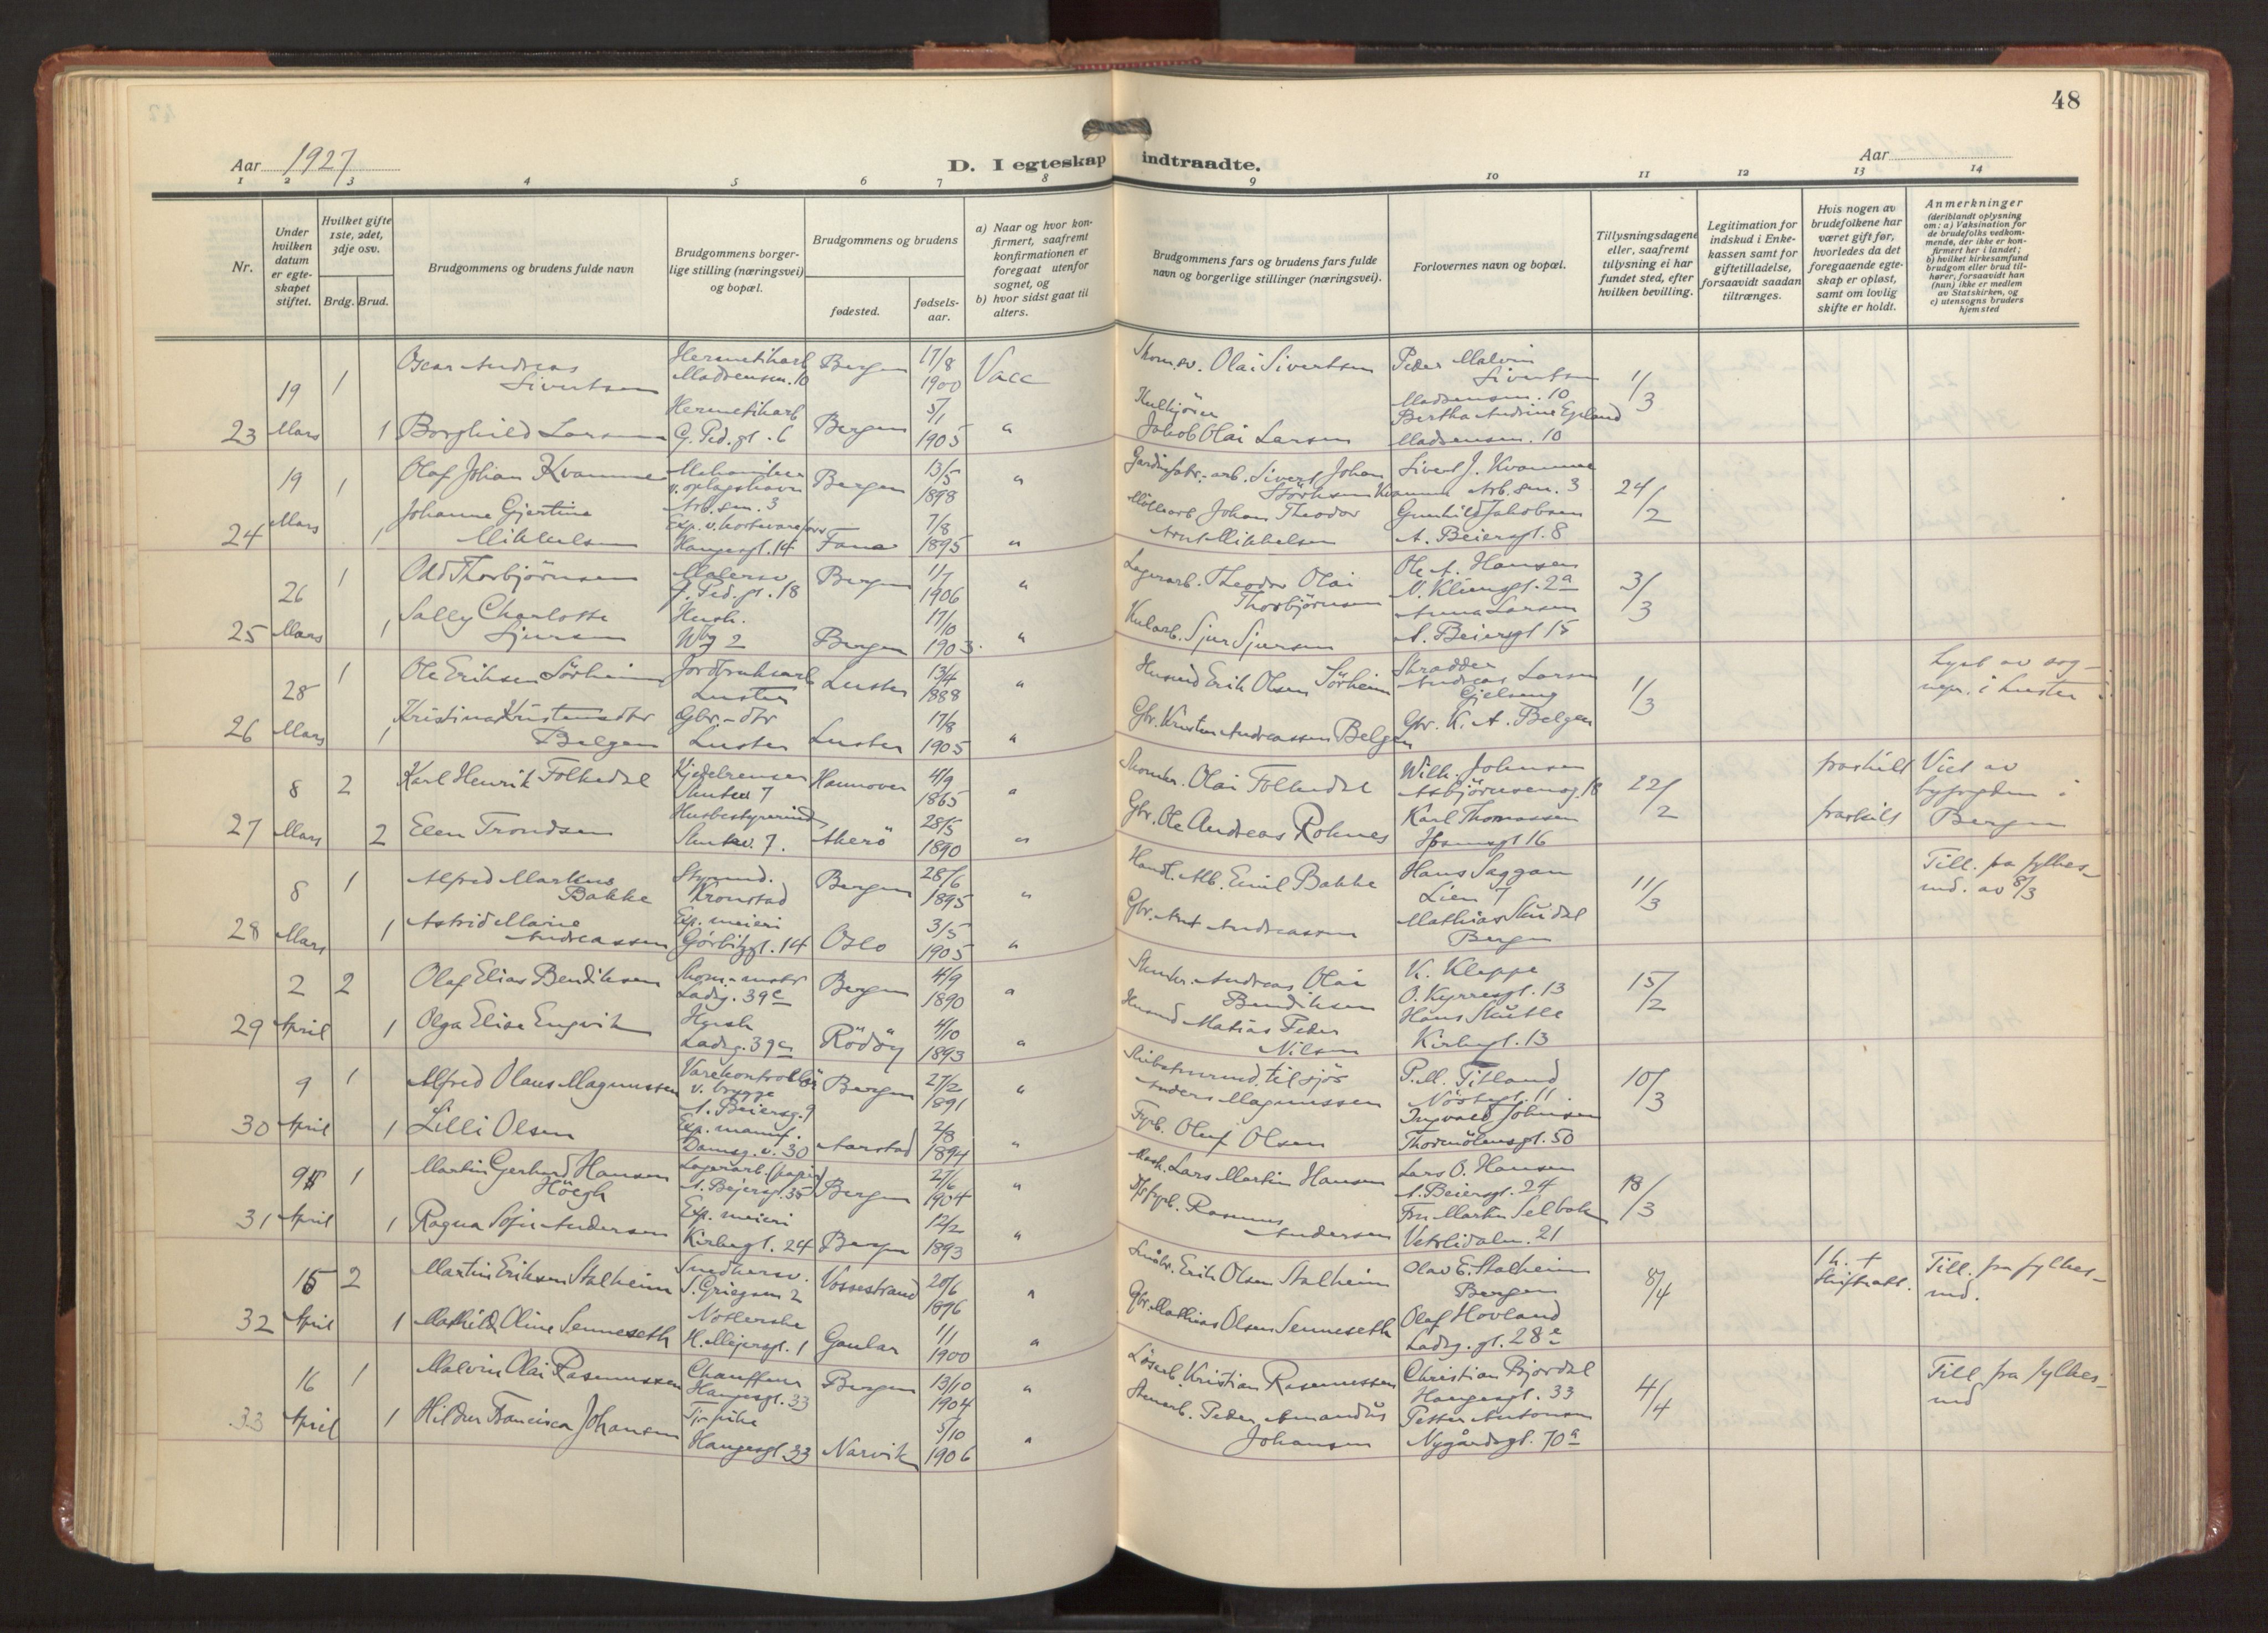 48
Aar 1927
D. I egteskap indtraadte.
Aar
1 2 3 4 5 6 7 8 9 10 11 12 13 14
Nr.
Under hvilken datum er egte-skapet stiftet.
Hvilket gifte 1ste, 2det, 3dje osv.
Brdg. Brud.
Brudgommens og brudens fulde navn
Brudgommens borger-lige stilling (næringsvei) og bopæl.
Brudgommens og brudens
fødested.
fødsels-aar.
a) Naar og hvor kon-firmert, saafremt konfirmationen er foregaat utenfor sognet, og
b) hvor sidst gaat til alters.
Brudgommens fars og brudens fars fulde navn og borgerlige stillinger (næringsvei).
Forlovernes navn og bopæl.
Tillysningsdagene eller, saafremt tillysning ei har fundet sted, efter hvilken bevilling.
Legitimation for indskud i Enke-kassen samt for giftetilladelse, forsaavidt saadan tiltrænges.
Hvis nogen av brudefolkene har været gift før, hvorledes da det foregaaende egte-skap er opløst, samt om lovlig skifte er holdt.
Anmerkninger
(deriblandt oplysning om: a) Vaksination for de brudefolks vedkom-mende, der ikke er kon-firmert her i landet; b) hvilket kirkesamfund brudgom eller brud til-hører, forsaavidt han (hun) ikke er medlem av Statskirken, og c) utensogns bruders hjemsted
23 19 Mars 1 Oscar Andreas Sivertsen Hermetikarb Madsensm. 10 Bergen 17/8 1900 Vacc Olai Sivertsen Peder Malvin Sivertsen Madsensm. 10 1/3
1 Borghild Larsen Hermetikarb G. Ped. gt. 6 Bergen 5/1 1905 " Kulkjörer Jakob Olai Larsen Bertha Andrine Egeland Madsensm. 10
24 19 Mars 1 Olaf Johan Kvamme Mekaniker v. oplagshavn Arb. sm. 3 Bergen 13/5 1898 " Sivert Johan Kvamme Sivert J. Kvamme Arb. sm. 3 24/2
1 Johanne Gjertine Mikkelsen Haugesgt. 14 Fana 7/8 1895 " Johan Theodor Arnt Mikkelsen Gunhild Jakobsen A. Beiersgt. 8
25 26 Mars 1 Odd Thorbjörnsen Malersv G. Ped. gt. 18 Bergen 1/7 1906 " Lagerarb. Theodor Olai Thorbjörnsen Ole A. Hansen N. Klimsgt. 2a 3/3
1 Sally Charlotte Sjursen Hush. Wbg 2 Bergen 17/10 1903 " Kularb. Sjur Sjursen Anna Larsen A. Beiersgt 15
26 28 Mars 1 Ole Eriksen Sörheim Jordbruksarb Luster Luster 13/4 1888 " Husmd Erik Olsen Sörheim Skrædder Andreas Larsen Gjelseng 1/3 Lyst av sog-nepr. i Luster
1 Kristina Kristensdtr Belgen Gbr.-dtr Luster Luster 17/8 1905 " Gbr. Kristen Andreassen Belgen Gbr. K. A. Belgen
27 8 Mars 2 Karl Henrik Folkedal Kjedelrenser Skutev. 7 Hannover 4/9 1865 " Olai Folkedal Wilh. Johnsen Asbjörnsensg. 18 22/2 fraskilt Viet av byfogden i Bergen
2 Elen Trondsen Husbestyrerinde Skutev. 7. Akerö 28/5 1890 " Gbr. Ole Andreas Roknes Karl Thomassen Ibsensgt 16 fraskilt
28 8 Mars 1 Alfred Markus Bakke Styrmd. Kronstad Bergen 28/6 1895 " Handl. Alb. Emil Bakke Hans Saggan Lien 7 11/3 Till. fra fylkes-md. av 8/3
1 Astrid Marie Andreassen Exp. meieri Görbitzgt. 14 Oslo 3/5 1905 " Gbr. Arnt Andreassen Mathias Skudal Bergen
29 2 April 2 Olaf Elias Bendiksen Skom.-mstr Ladeg. 39c Bergen 4/9 1890 " Andreas Olai Bendiksen K. Kleppe O. Kyrresgt. 13 15/2
1 Olga Elise Engvik Hush Ladeg. 39c Rödöy 4/10 1893 " Husmd Matias Peder Nilsen Hans Skutle Kirkegt. 13
30 9 April 1 Alfred Olaus Magnussen Varekontrollör v. brygge A. Beiersg. 9 Bergen 27/2 1891 " tilsjös Anders Magnussen P. M. Titland Nöstegt. 11. 10/3
1 Lilli Olsen Exp. manuf. Damsg. v. 30 Aarstad 2/8 1894 " Fyrb. Oluf Olsen Ingvald Johnsen Thormölensgt. 50
31 9 April 1 Martin Gerhard Hansen Höegh Lagerarb. (papir) A. Beiersgt. 35 Bergen 27/6 1904 " Mask. Lars Martin Hansen Lars O. Hansen A. Beiersgt. 24 18/3
1 Ragna Sofie Andersen Exp. meieri Kirkegt. 24 Bergen 12/2 1893 " Rasmus Andersen Fru Martha Selbak Vetrlidalm. 21
32 15 April 2 Martin Eriksen Stalheim Snedkersv. S. Griegsm 2 Vossestrand 20/6 1896 " Småbr. Erik Olsen Stalheim Olav E. Stalheim Bergen 8/4 1 h. + Skifteatt. Till. fra fylkes-md.
1 Mathilde Oline Senneseth H. Meyersgt. 1 Gaular 1/1 1900 " Gbr. Mathias Olsen Senneseth Olaf Hovland Ladeg. gt. 28e
33 16 April 1 Malvin Olai Rasmussen Chauffeur Haugesgt. 33 Bergen 13/10 1904 " Kristian Rasmussen Christian Bjordal Haugesgt. 33 4/4 Till fra fylkes-md
1 Hildur Francisca Johansen Tj. pike Haugesgt. 33 Narvik 5/10 1906 " Stenarb. Peder Amandus Johansen Petter Antonsen Nygårdsgt. 70a